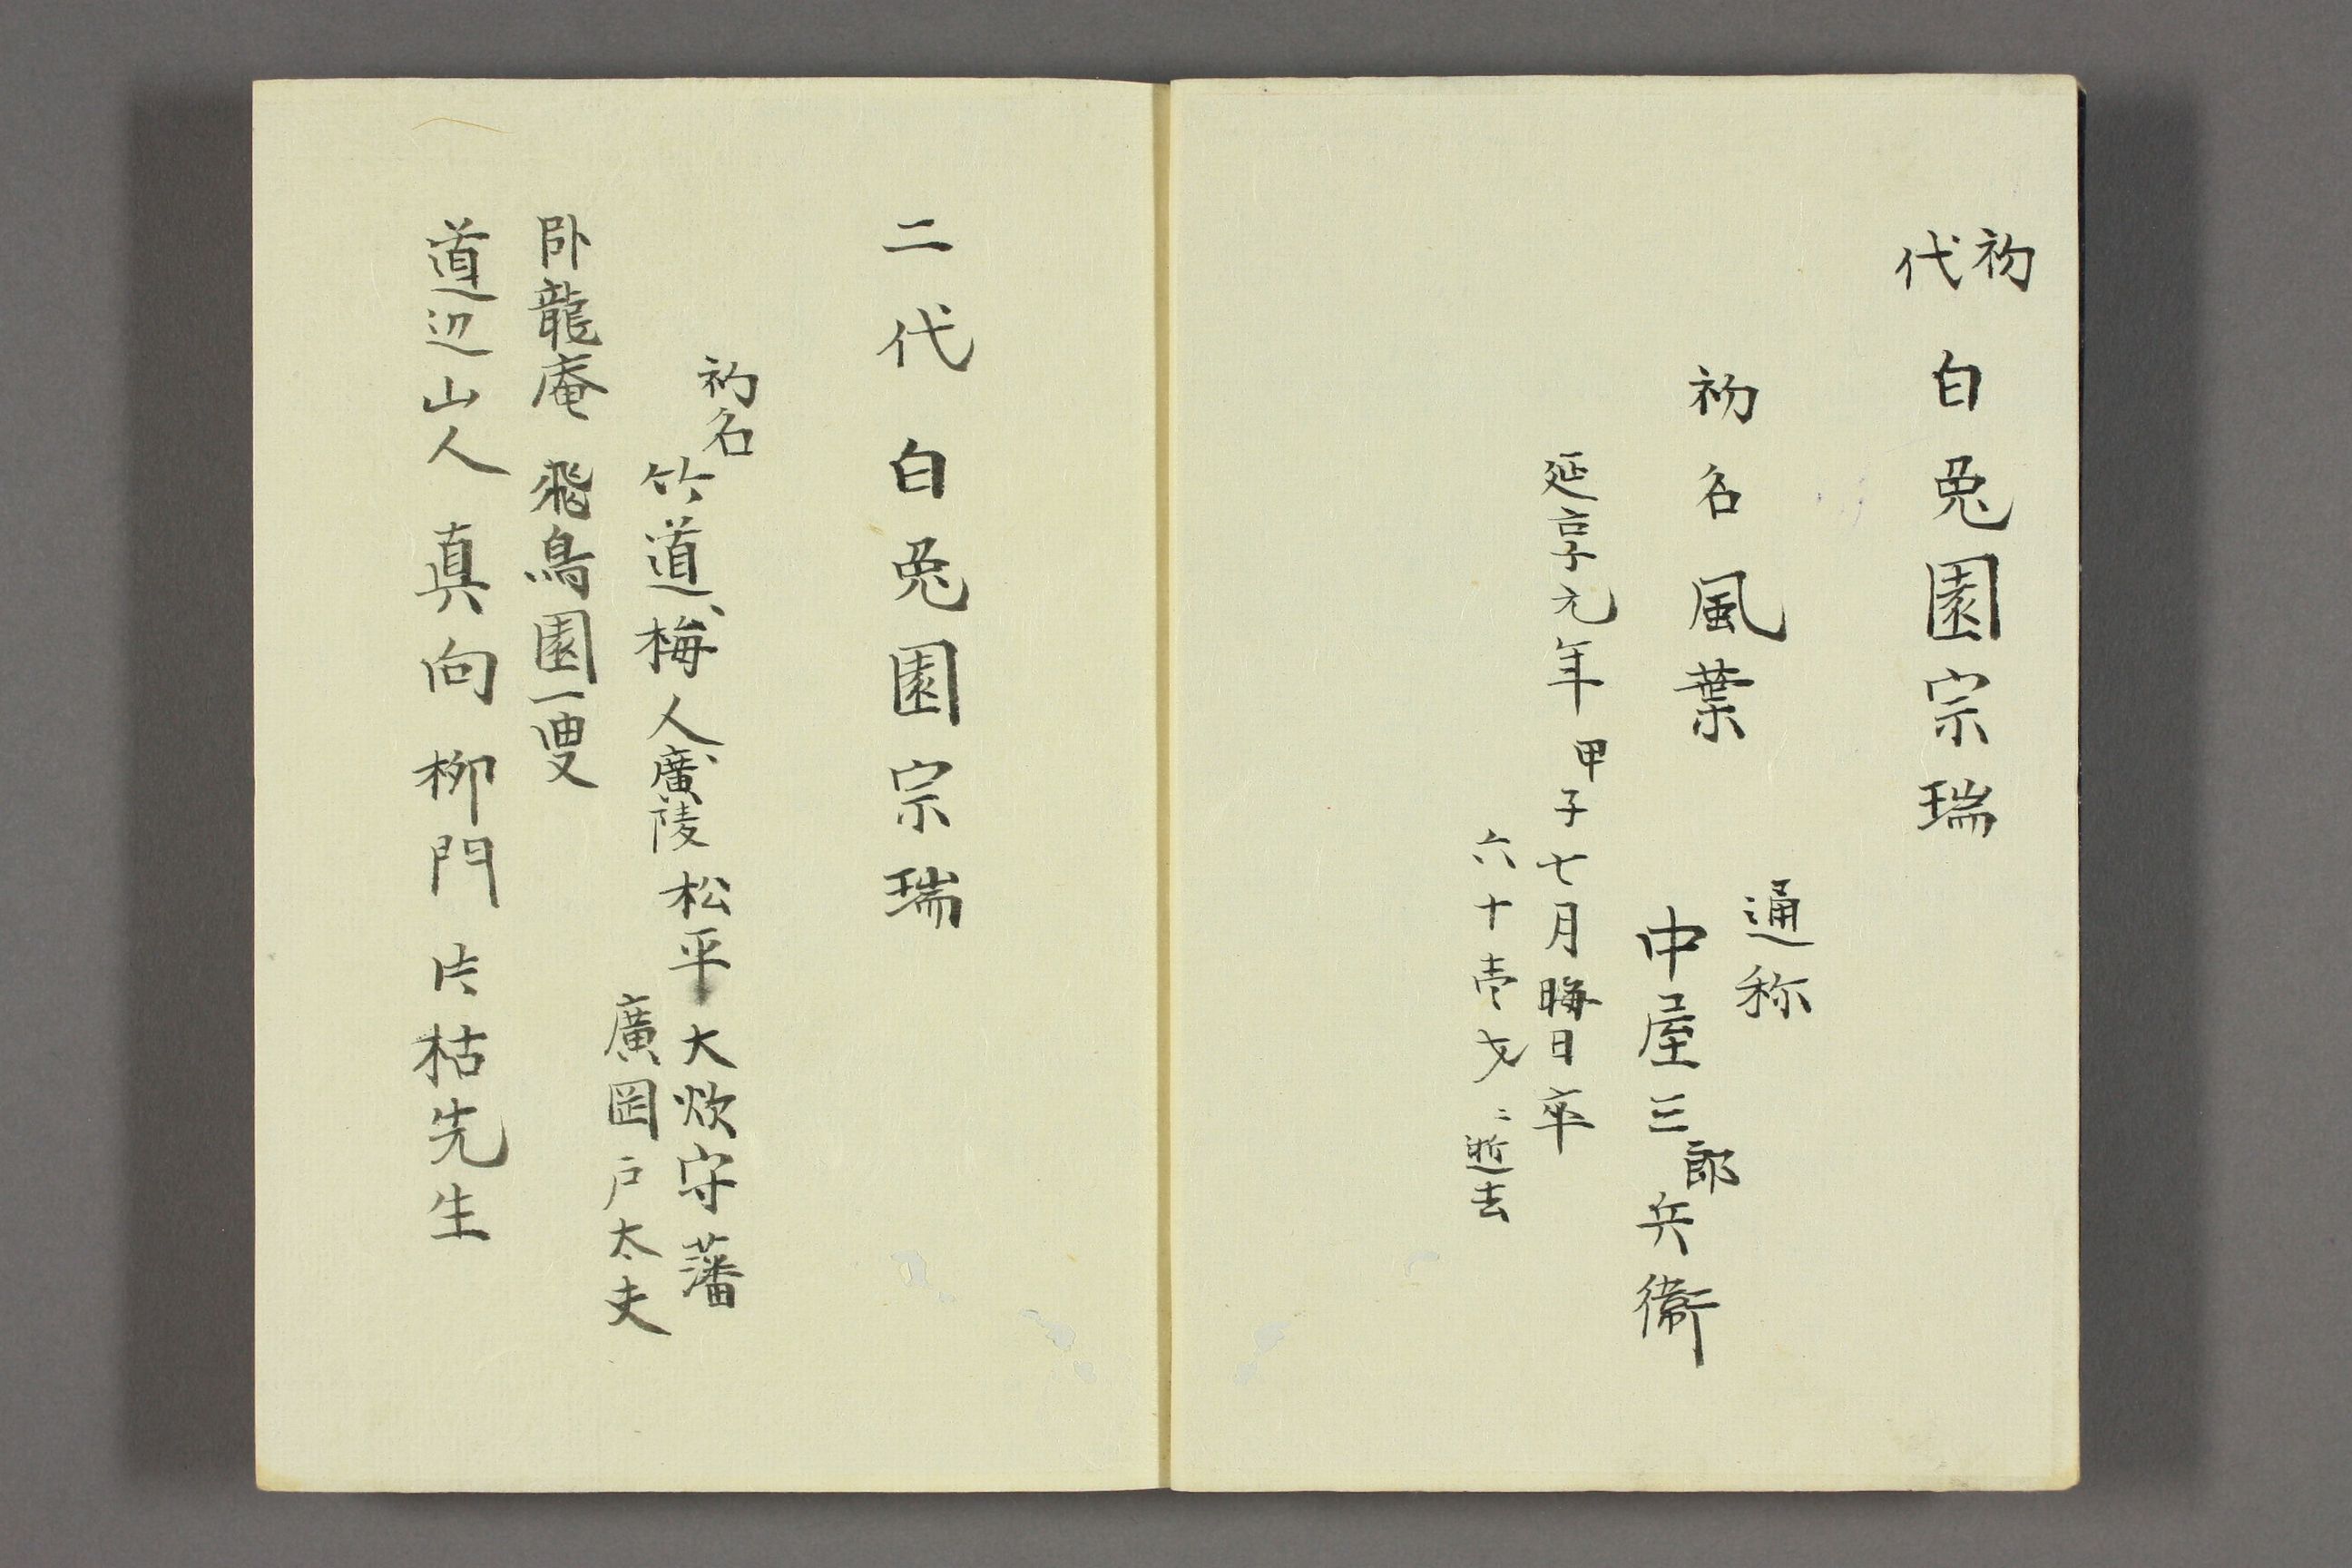 初代 白兎園宗瑞
初名風葉
通称
中屋三郎兵衛
延享元年甲子七月晦日卒
六十壱才ニ逝去
二代 白兎園宗瑞
初名
竹道、梅人、廣陵 松平大炊守藩
廣岡戸太夫
卧龍庵 飛鳥園一叟
道辺山人 真向 柳門 片枯先生